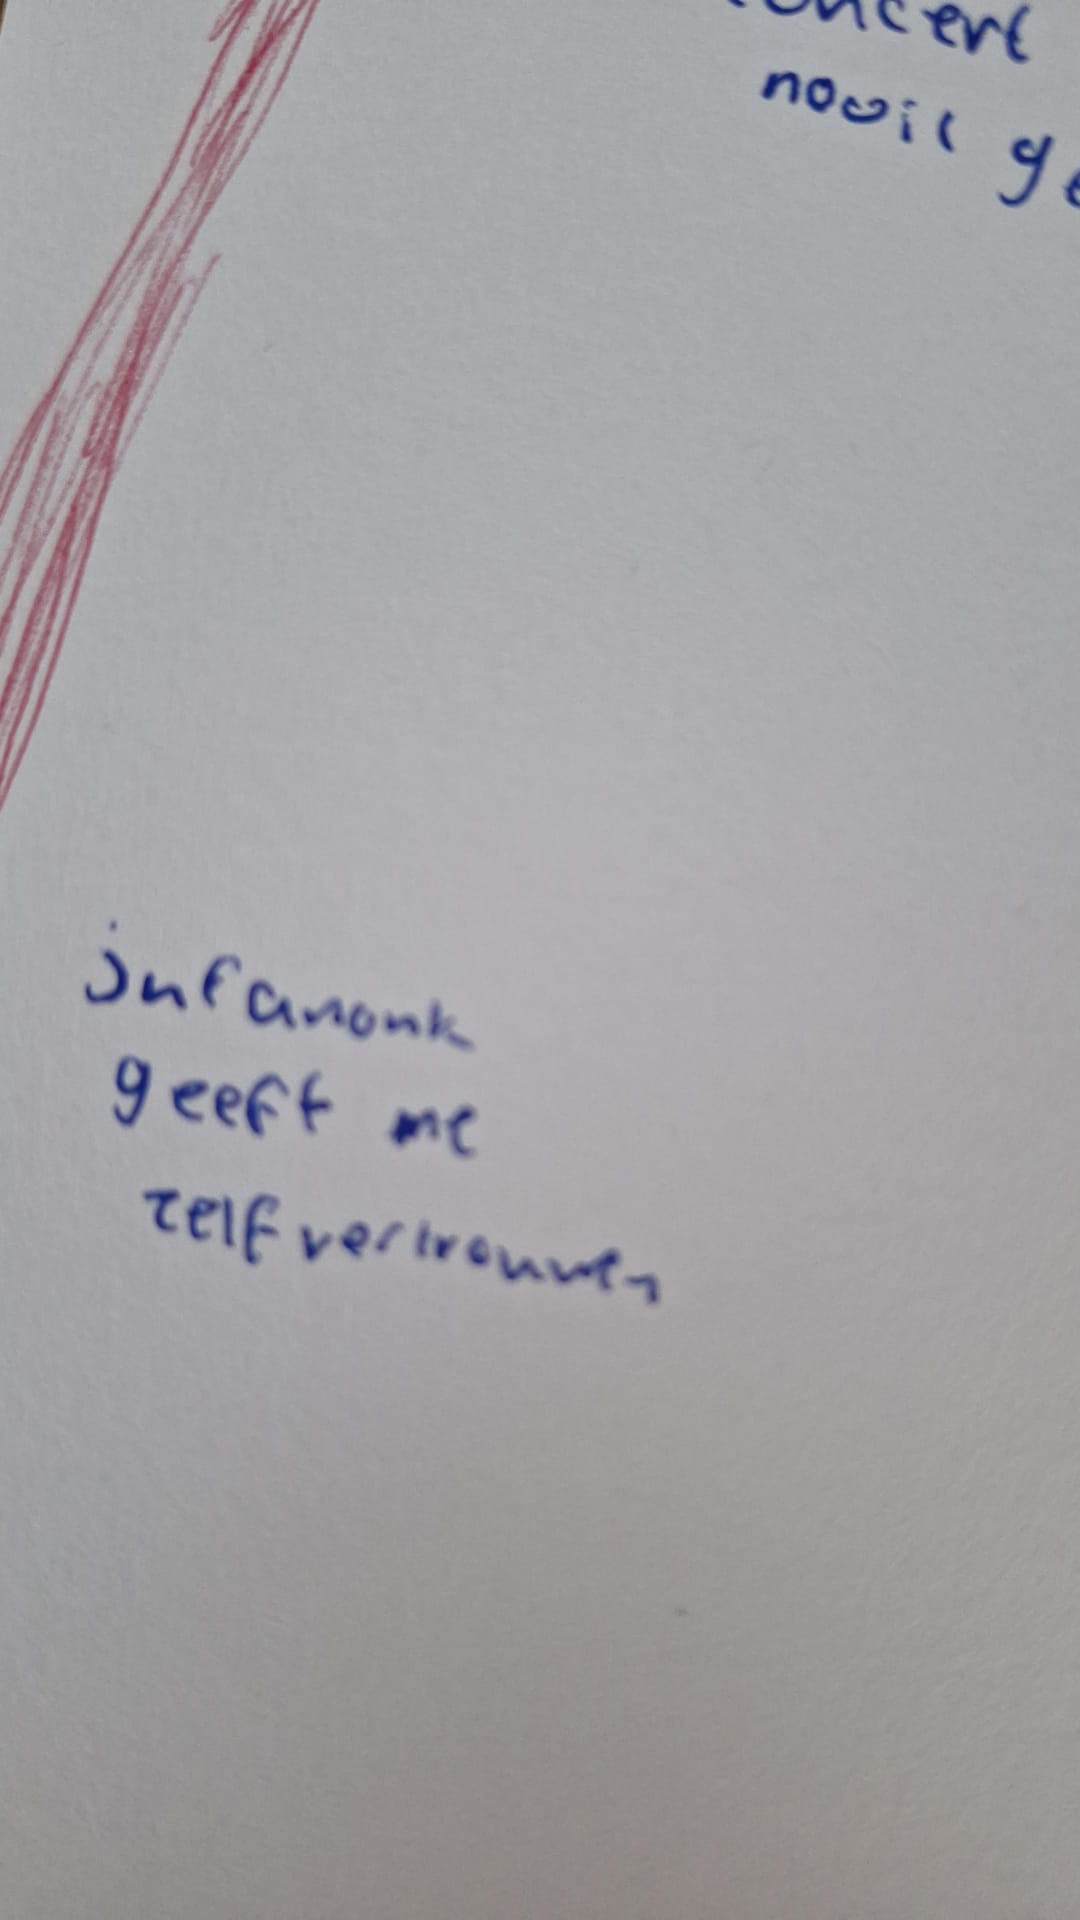 concert
nooit ge
juf anonk
geeft me
zelf vertrouwen